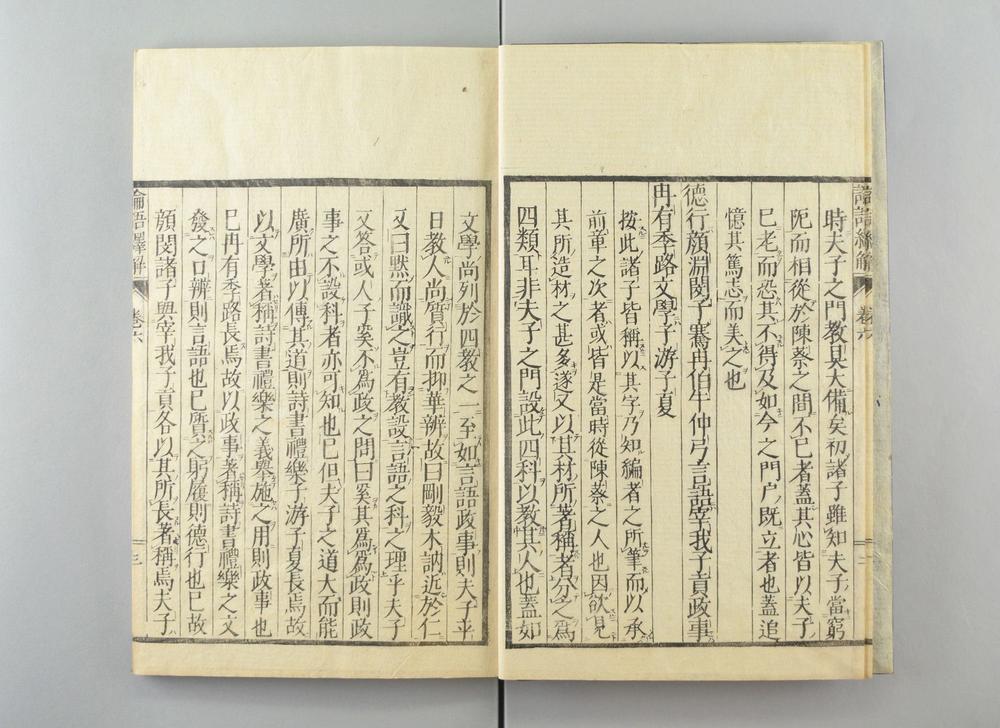 時夫子之門教具大備矣初諸子雖知夫子當窮
阨而相從於陳蔡之間不已者蓋其心皆以夫子
已老而恐其不得及如今之門户既立者也蓋追
憶其篤志而美之也
德行顔淵閔子騫冉伯牛仲弓言語宰我子貢政事
冉有季路文學子游子夏
按此諸子皆稱以其字乃知編者之所筆而以承
前章之次者或皆是當時從陳蔡之人也因欲見
其所造材之甚多遂又以其材所著稱者分之爲
四類耳非夫子之門設此四科以教其人也蓋如
文學尚列於四教之一至如言語政事則夫子平
日教人尚質行而抑華辨故曰剛毅木訥近於仁
又曰默而識之豈有教設言語之科之理乎夫子
又答或人子奚不爲政之問曰奚其爲爲政則政
事之不設科者亦可知也已但夫子之道大而能
廣所由以傳其道則詩書禮樂子游子夏長焉故
以文學著稱詩書禮樂之義舉施之用則政事也
已冉有季路長焉故以政事著稱詩書禮樂之文
發之口辨則言語也已質之躬履則德行也已故
顔閔諸子與宰我子貢各以其所長者稱焉夫子
論語繹解
卷六
三